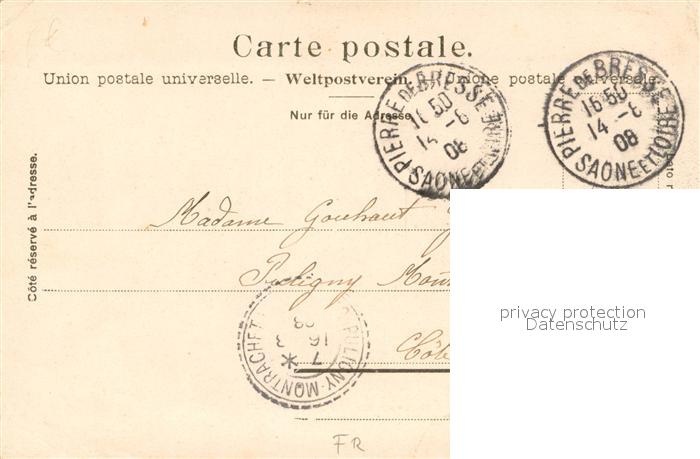 Carte postale.
Union postale universelle. — Weltpostverein. — Unione postale universale.
Nur für die Adresse.
Côté réservé à l'adresse.
PIERRE DE BRESSE
16 50
14 -6
08
SAONE ET LOIRE
PIERRE DE BRESSE
16 50
14 -6
08
SAONE ET LOIRE
Madame Gouhaut
Puligny
Côte
PULIGNY-MONTRACHET
7
FR
privacy protection
Datenschutz